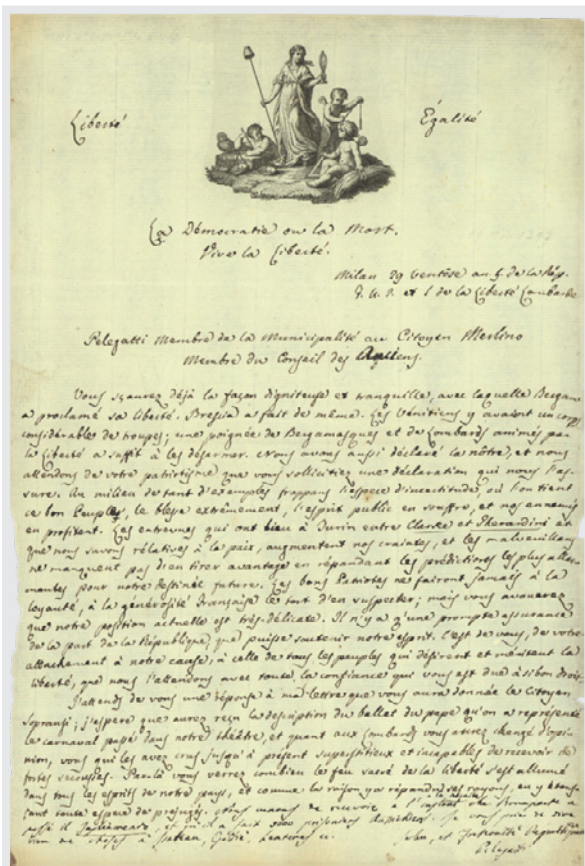 Liberté Égalité
La Démocratie ou la Mort.
Vive la Liberté.
Milan 29 Ventôse an 5. de la Rép.
F. U. I. et I de la Liberté Lombarde
Pelegatti Membre de la Municipalité au Citoyen Merlino
Membre du Conseil des
Vous sçaurez déjà la façon digniteuse et tranquille, avec laquelle Bergam
a proclamé sa liberté. Brescia a fait de même. Les Vénitiens y avaient un corps
considérables de troupes; une poignée de Bergamasques et de Lombards animés par
la Liberté a suffit à les désarmer. Nous avons aussi déclaré la nôtre, et nous
attendons de votre patriotisme que vous sollicitiez une déclaration qui nous l'as-
sure. Au milieu de tant d'exemples frappans l'espece d'incertitude, où l'on tient
ce bon Peuple, le blesse extrèmement, l'esprit public en souffre, et nos ennemis
en profitent. Les entrevues qui ont lieu à Turin entre Clarke et Gherardini et
que nous savons rélatives à la paix, augmentent nos craintes, et les malveuillans
ne manquent pas d'en tirer avantage en répandant les prédictions les plus allar-
mantes pour notre destinée future. Les bons Patriotes ne fairont jamais à la
loyauté, à la générosité Française le tort d'en suspecter; mais vous avouerez
que notre position actuelle est très-délicate. Il n'y a q'une prompte assurance
de la part de la République, que puisse soutenir notre esprit. C'est de vous, de votre
attachement à notre cause, à celle de tous les peuples qui désirent et méritent la
liberté, que nous l'attendons avec toute la confiance qui vous est due à si bon droit.
J'attends de vous une réponse à ma lettre que vous aura donnée le Citoyen
Sopransi; j'espère que aurez reçu la description du ballet du pape qu'on a représenté
le carnaval passé dans notre théâtre, et quant aux Lombards vous aurez changé d'opi-
nion, vous qui les avez crus jusqu'à présent superstitieux et incapables de recevoir de
fortes secousses. Par là vous verrez combien le feu sacré de la liberté s'est allumé
dans tous les esprits de notre pays, et comme la raison y répand ses rayons, en y étouf-
fant toute espece de préjugés. Nous venons de recevoir à l'instant que Bonaparte a
passé il Tagliamento, et qu'il a fait prisonniers Je vous prie de
Salut, et Fraternité
Pelegatti